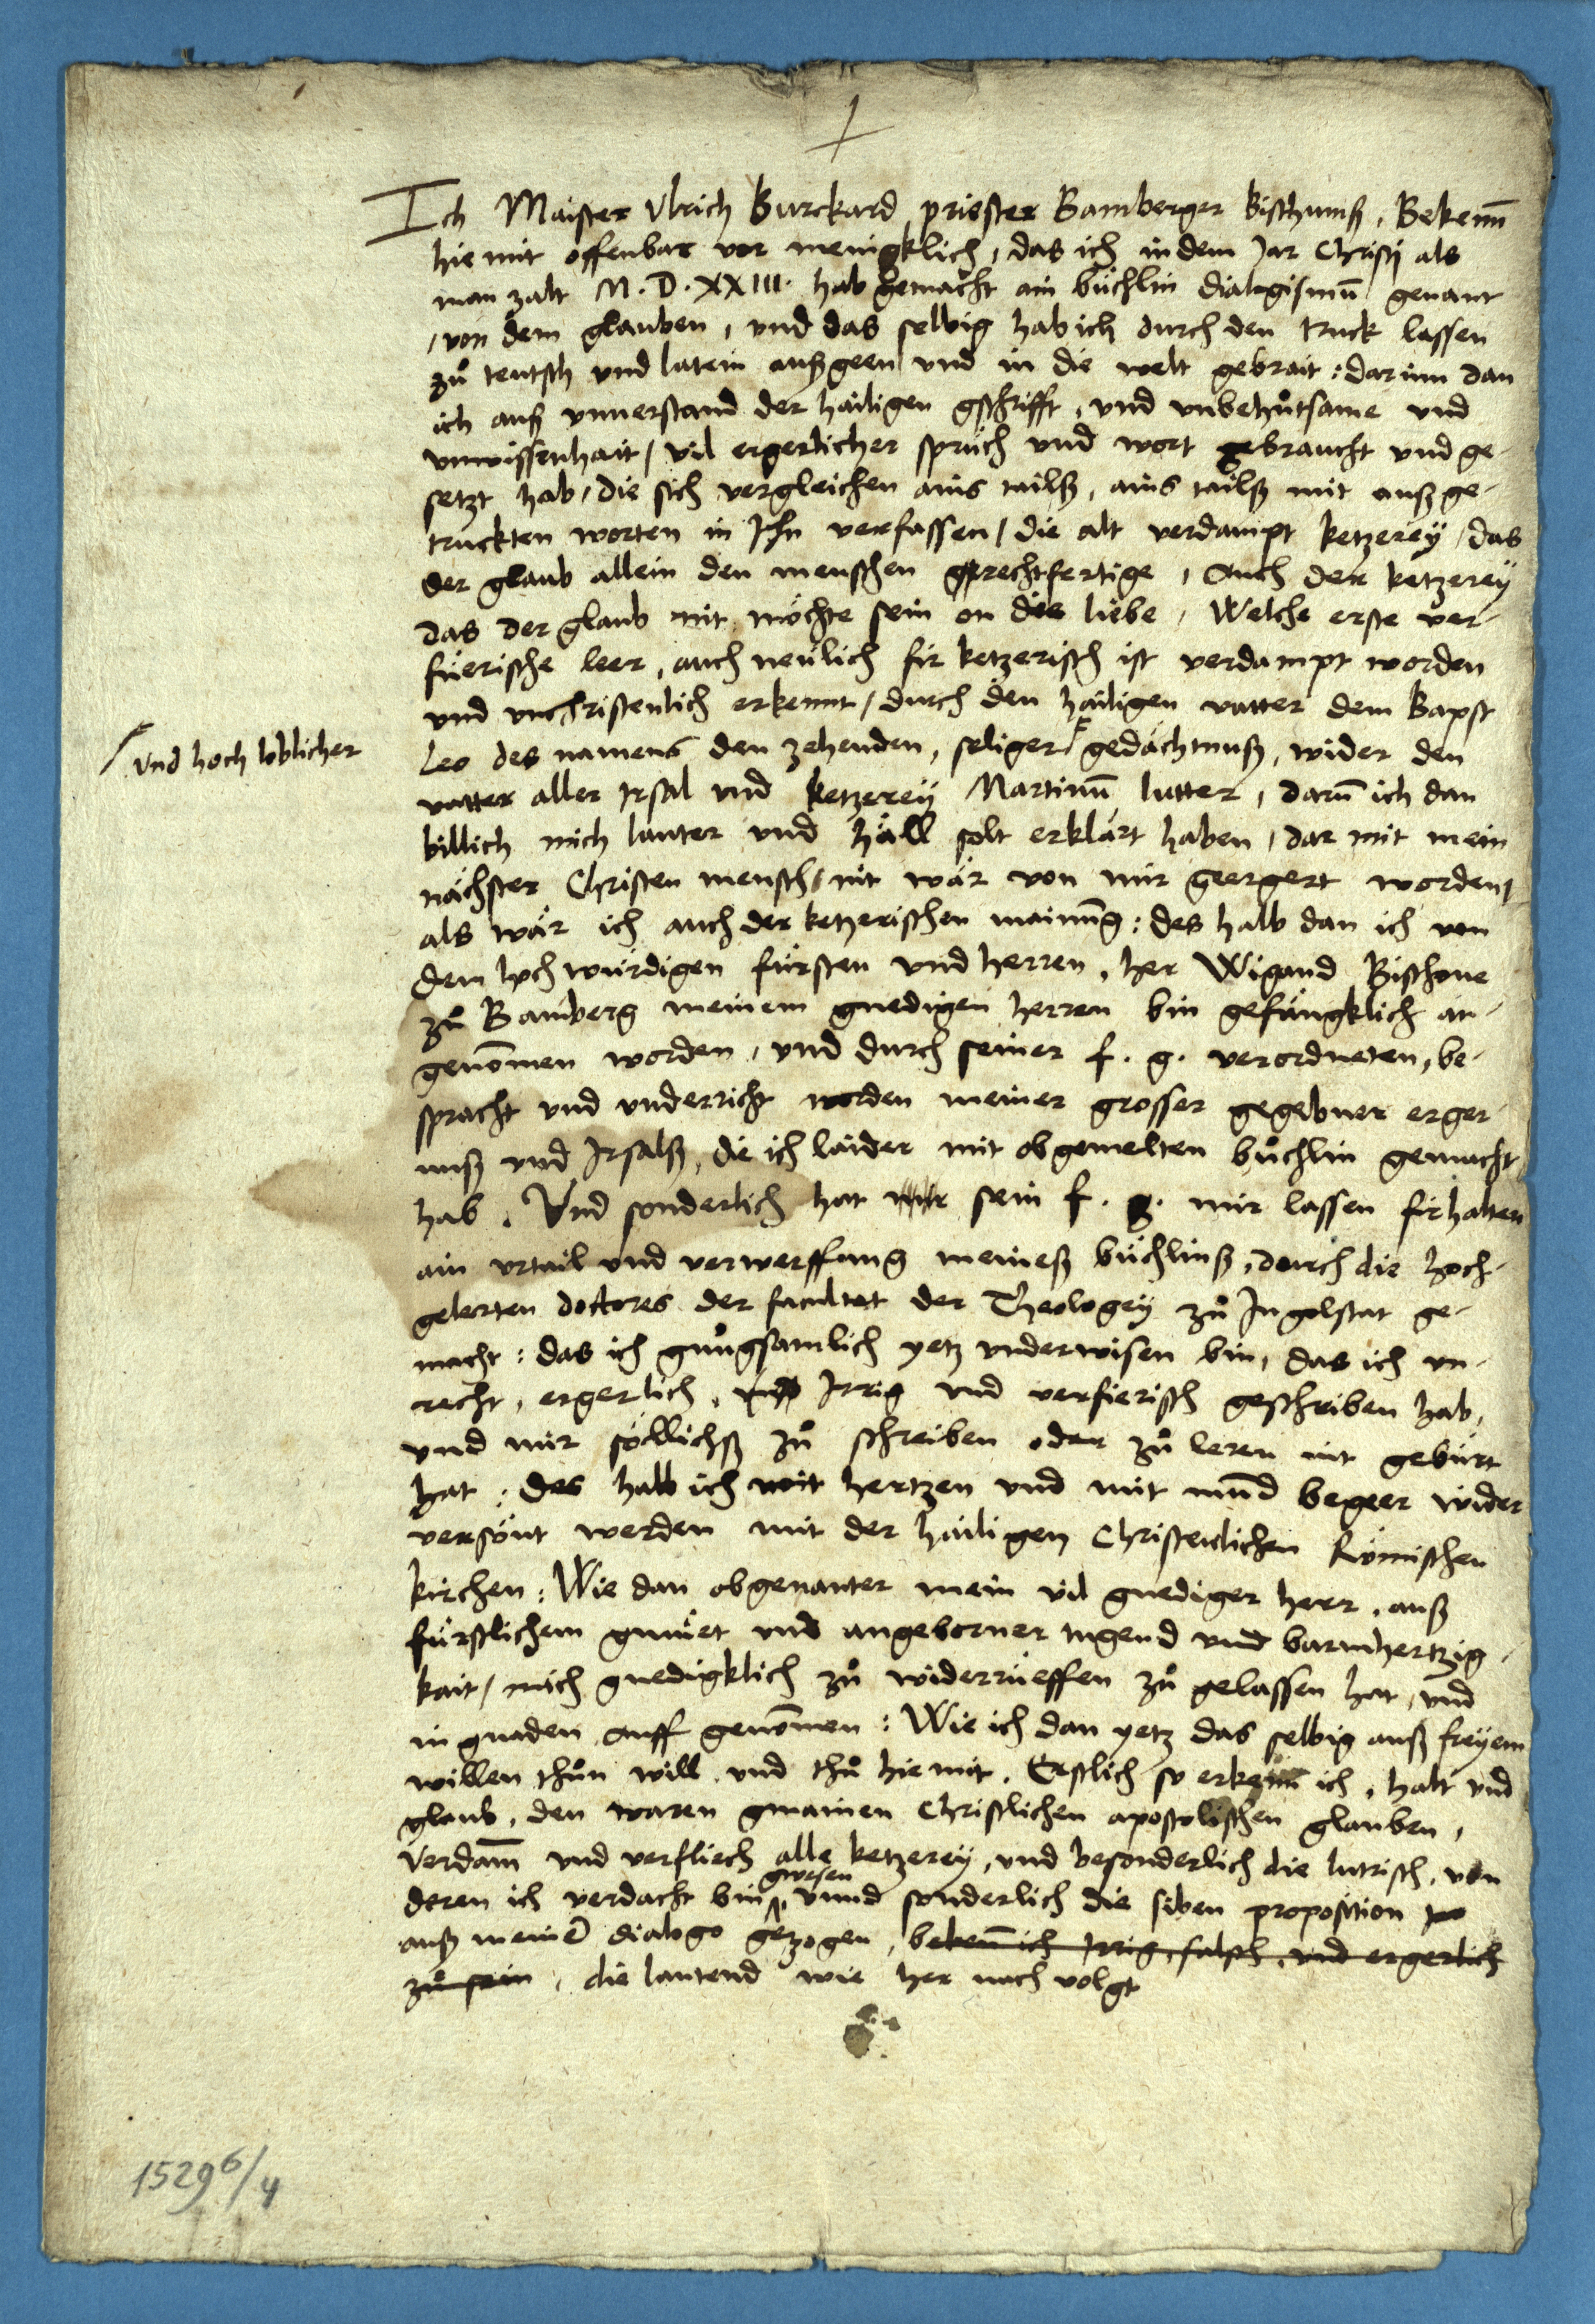 +
Ich Maister Vlrich Burckard priester Bamberger bisthumß, Bekenn̄
hie mit offenbar vor menigklich, das ich in dem Jar Christj als
man zalt M.D.XXIII. hab gemacht ain büchlin dialogismū genant
/ von dem glauben, vnd das selbig hab ich durch den truck lassen
zů teutsch vnd latein außgeen vnd in die welt gebrait: dar inn dan
ich auß vnuerstand der hailigen gschrifft, vnd vnbehůtsame vnd
vnwissenhait / vil ergerlicher sprüch vnd wort gebraucht vnd ge-
setzt hab, die sich vergleichen ains tailß, ains tailß mit außge-
truckten worten in Jhn verfassen / die alt verdampt ketzereÿ / das
der glaub allein den menschen grechtfertige, Auch der ketzereÿ
das der glaub nit möchte sein on die liebe, Welche erste ver-
füerische leer, auch neulich fir ketzerisch ist verdampt worden
vnd vnchristenlich erkennt / durch den hailigen vatter dem Bapst
Leo des namens den zehenden, seliger gedächtnuß, wider den
/ vnd hoch loblicher
vatter aller Irsal vnd ketzereÿ Martinū lutter, darū ich dan
billich mich lauter vnd häll solt erklärt haben, dar mit mein
nächster Christen mensch / nit wär von mir geergert worden,
als wär ich auch der ketzerischen mainūg: des halb dan ich von
dem hochwürdigen fürsten vnd herren, her Wigand Bischoue
zů Bamberg meinem gnedigen herren bin gefängklich an-
genōmen worden, vnd durch seiner f. g. verordneten, be-
spracht vnd vnderricht worden meiner grosser gegebner erger-
nuß vnd Irsalß, die ich laider mit obgemelten büchlin gemacht
hab. Vnd sonderlich hat mir sein f. g. mir lassen firhalten
ain vrtail vnd verwerffung meineß büchlinß, durch die hoch-
gelerten doctores der facultet der Theologeÿ zů Ingolstat ge-
macht: das ich gnůgsamlich yetz vnderwisen bin, das ich vn-
recht, ergerlich, vnd Irrig vnd verfierisch geschriben hab,
vnd mir söllichß zů schreiben oder zů leren nit gebürt
hat: des halb ich mit hertzen vnd mit mūd begeer wider
versönt werden mit der hailigen Christenlichen Römischen
kirchen: Wie dan obgenanter mein vil gnediger herr, auß
fürstlichem gmüet vnd angeborner tugend vnd barmhertzig-
kait / mich gnedigklich zů widerrüeffen zů gelassen hat, vnd
in gnaden auff genōmen: Wie ich dan yetz das selbig auß freÿem
willen thůn will vnd thů hie mit. Erstlich so erkenn ich, halt vnd
glaub, den waren gmainen Christlichen apostolischen glauben,
Verdam̄ vnd verfliech alle ketzereÿ, vnd besonderlich die lutrisch, von
deren ich verdacht bin gwesen vnnd sonderlich die siben proposition
auß meinē dialogo gezogen, beken̄ ich Irrig, falsch, vnd ergerlich
zů sein, die lautend wie her nach volgt
1529 6/4